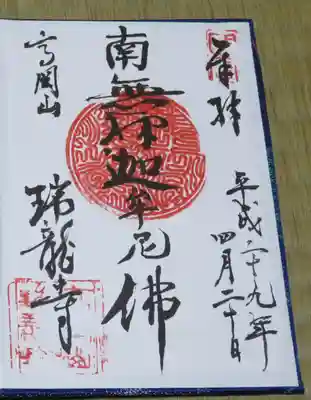 奉拝
平成二十九年
四月二十日
南無釋迦牟尼佛
高岡山
瑞龍寺